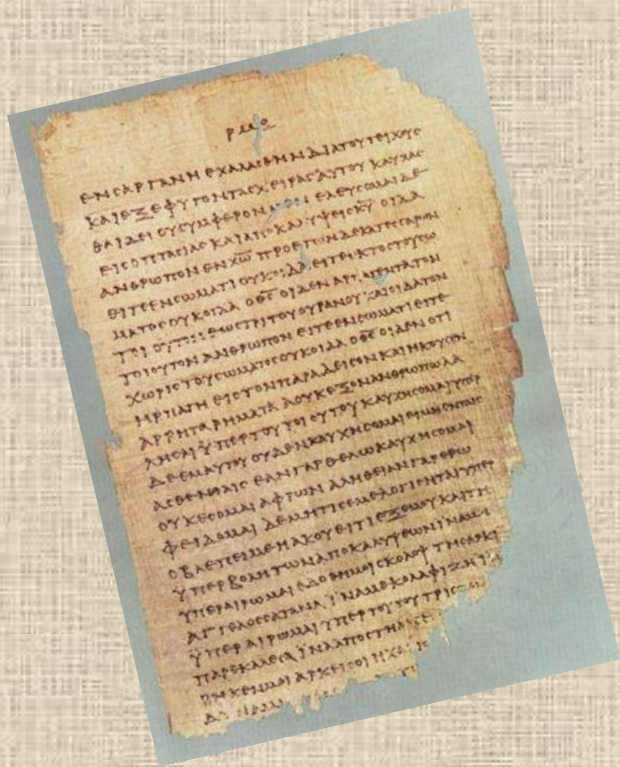 ΕΝ ΣΑΡΓΑΝΗ ΕΧΑΛΑΣΘΗΝ ΔΙΑ ΤΟΥ ΤΕΙΧΟΥΣ
ΚΑΙ ΕΞΕΦΥΓΟΝ ΤΑΣ ΧΕΙΡΑΣ ΑΥΤΟΥ ΚΑΥΧΑΣ
ΘΑΙ ΔΕΙ ΟΥ ΣΥΜΦΕΡΟΝ ΜΕΝ ΕΛΕΥΣΟΜΑΙ ΔΕ
ΕΙΣ ΟΠΤΑΣΙΑΣ ΚΑΙ ΑΠΟΚΑΛΥΨΕΙΣ ΚΥ ΟΙΔΑ
ΑΝΘΡΩΠΟΝ ΕΝ ΧΩ ΠΡΟ ΕΤΩΝ ΔΕΚΑΤΕΣΣΑΡΩΝ
ΕΙΤΕ ΕΝ ΣΩΜΑΤΙ ΟΥΚ ΟΙΔΑ ΕΙΤΕ ΕΚΤΟΣ ΤΟΥ ΣΩ
ΜΑΤΟΣ ΟΥΚ ΟΙΔΑ Ο ΘΣ ΟΙΔΕΝ ΑΡΠΑΓΕΝΤΑ ΤΟΝ
ΤΟΙΟΥΤΟΝ ΕΩΣ ΤΡΙΤΟΥ ΟΥΡΑΝΟΥ ΚΑΙ ΟΙΔΑ ΤΟΝ
ΤΟΙΟΥΤΟΝ ΑΝΘΡΩΠΟΝ ΕΙΤΕ ΕΝ ΣΩΜΑΤΙ ΕΙΤΕ
ΧΩΡΙΣ ΤΟΥ ΣΩΜΑΤΟΣ ΟΥΚ ΟΙΔΑ Ο ΘΣ ΟΙΔΕΝ ΟΤΙ
ΗΡΠΑΓΗ ΕΙΣ ΤΟΝ ΠΑΡΑΔΕΙΣΟΝ ΚΑΙ ΗΚΟΥΣΕΝ
ΑΡΡΗΤΑ ΡΗΜΑΤΑ Α ΟΥΚ ΕΞΟΝ ΑΝΘΡΩΠΩ ΛΑ
ΛΗΣΑΙ ΫΠΕΡ ΤΟΥ ΤΟΙΟΥΤΟΥ ΚΑΥΧΗΣΟΜΑΙ ΥΠΕΡ
ΔΕ ΕΜΑΥΤΟΥ ΟΥΔΕΝ ΚΑΥΧΗΣΟΜΑΙ ΕΙ ΜΗ ΕΝ ΤΑΙΣ
ΑΣΘΕΝΙΑΙΣ ΕΑΝ ΓΑΡ ΘΕΛΩ ΚΑΥΧΗΣΟΜΑΙ
ΟΥΚ ΕΣΟΜΑΙ ΑΦΡΩΝ ΑΛΗΘΕΙΑΝ ΓΑΡ ΕΡΩ
ΦΕΙΔΟΜΑΙ ΔΕ ΜΗ ΤΙΣ ΕΜΕ ΛΟΓΙΣΗΤΑΙ ΥΠΕΡ
Ο ΒΛΕΠΕΙ ΜΕ Η ΑΚΟΥΕΙ ΤΙ ΕΞ ΕΜΟΥ ΚΑΙ ΤΗ
ΫΠΕΡΒΟΛΗ ΤΩΝ ΑΠΟΚΑΛΥΨΕΩΝ ΙΝΑ ΜΗ
ΥΠΕΡΑΙΡΩΜΑΙ ΕΔΟΘΗ ΜΟΙ ΣΚΟΛΟΨ ΤΗ ΣΑΡΚΙ
ΑΓΓΕΛΟΣ ΣΑΤΑΝΑ ΪΝΑ ΜΕ ΚΟΛΑΦΙΖΗ Ϊ
ΫΠΕΡΑΙΡΩΜΑΙ ΥΠΕΡ ΤΟΥΤΟΥ ΤΡΙΣ
ΠΑΡΕΚΑΛΕΣΑ ΪΝΑ ΑΠΟΣΤΗ
ΡΗΚΕΝ ΜΟΙ ΑΡΚΕΙ ΣΟΙ Η ΧΑΡΙΣ